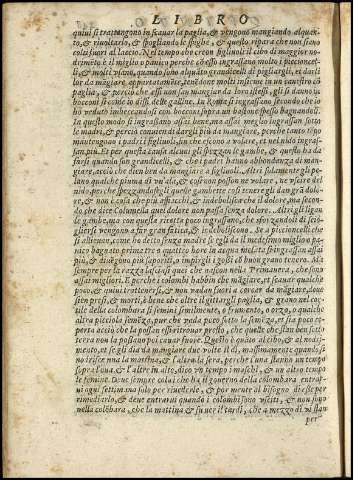 LIBRO
quiui si trattengono in scauar la paglia, & vengono mangiando alquan-
to, & riuoltarlo, & spogliando le spighe, & questo ripara che non siano
colti subito al laccio. Nel tempo che creano figliuoli il cibo di maggior no-
drimēto è il miglio o panico perche con esso ingrassano molto i piccioncel-
li, & molti v'sano, quando sono alquāto grandicelli di pigliargli, et dar li
lor da māgiare, appartatamēte, tenēdone molti insieme in un canestro cō
paglia, & perciò che essi non san mangiare da lor istessi, gli si dāno in
bocconi si come io dissi delle galline. In Roma si ingrassano secondo che io
hò veduto imbeccandoli con bocconi sopra un bastone spesso bagnandoli.
In questo modo si ingrassano assai bene, ma assai meglio ingrassan sotto
le madri, & perciò conuien di dargli più da mangiare, perche tanto tēpo
mantengono i padri i figliuoli, in che gionno a volare, et nel nido ingrās-
san più. Et per questa causa alcuni gli spezzan le gambe, & questo ha da
farsi quando son grandicelli, & che i padri hanno abbondanza di man-
giare, acciò che dien ben da mangiare a figliuoli. Altri solamente gli pe-
lano qualche piuma dl'ala, & cosi non possono ne volare, ne vscire del
nido, perche spezzandogli quelle gambette cosi tenere gli dan grā dolo-
re, & non è cosa che più affiacchi, & indebolisca che il dolore, ma secon-
do, che dice Columella quel dolore non passa senza dolore. Altri gli ligan
le gambe, ma con queste ristette poco ingrassano, anzi, che cercando di scio-
gliersi vengono a far gran fatica, & indebolisconsi. Se a piccioncelli che
si alleuano, come ho detto senza madre si gli dà il medesimo miglio pa-
nico bagnato prima tre o quattro hore in acqua melata s'ingrassano assai
più, & diuēgono più saporiti, o impirgli i gozi di buon grano tenero. Ma
sempre per la razza lasciasi quei che nascon nella Primauera, che sono
assai migliori. E perche i colombi habbin che māgiare, et scauar qualche
poco, & quiui trattenersi, & non vadan fuori a cercar da māgiare, doue
sien presi, & morti, è bene che oltre il gittargli paglia, & grano nel cor-
tile della colombara si semini similmente, o frumento, o orzo, o qualche
altra picciola semēza, pur che vada poco sotto la semēza, et sia poco co-
perta acciò che la possan essi ritrouar presto, che quelle che stan ben sotto
terra non la possano poi cauar fuore. Questo è quāto al cibo, & al nodri-
mento, et se gli dia da mangiare due volte il dì, massimamente quando si
no ristte ma la mattina, & l'altra la sera, perche l'una stanno un tempo
sopra l'oua, & l'altre in alto, dico vn tempo i maschi, & un altro tempo
le femine. Deue sempre colui che ha il gouerno della colombara entrar-
ui ogni settimana solo per riuederle, & por mente al bisogno di esse per
rimediarlo, & deue entrarui quando i colombi sono vsciti, & non sono
nella colōbara, che la mattina è su ver il tardi, che a mezzo dì vi stan
per